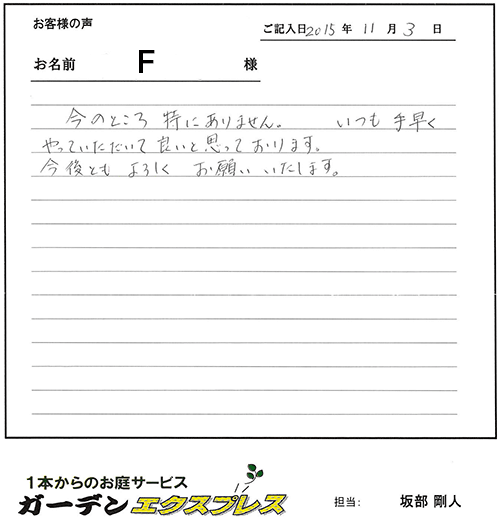 お客様の声
ご記入日2015年 11月 3日
お名前 F 様
今のところ 特にありません。 いつも 手早く
やっていただいて 良いと思っております。
今後とも よろしく お願い いたします。
1本からのお庭サービス
ガーデンエクスプレス
担当: 坂部 剛人